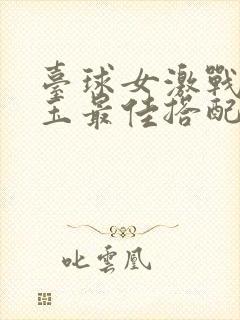 臺球女激戰
王最佳搭配
叱雲凰